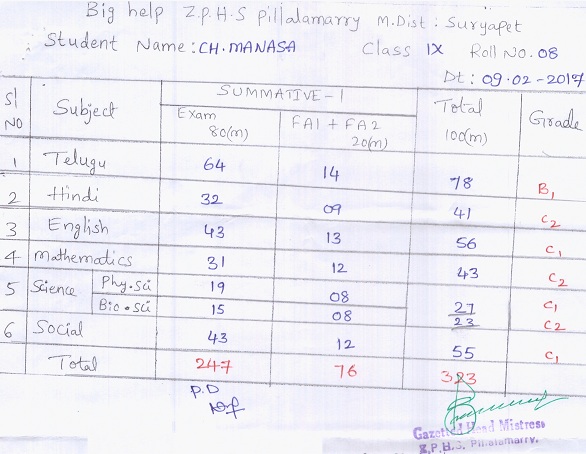 Big help Z.P.H.S Pillalamarry M.Dist : Suryapet
Student Name : CH. MANASA Class IX Roll No. 08
Dt : 09-02-2017
Sl NO Subject SUMMATIVE-1 Total 100(m) Grade
Exam 80(m) FA1 + FA2 20(m)
1 Telugu 64 14 78 B1
2 Hindi 32 09 41 C2
3 English 43 13 56 C1
4 Mathematics 31 12 43 C2
5 Science Phy.sci 19 08 27 C1
Bio.sci 15 08 23 C2
6 Social 43 12 55 C1
Total 247 76 323
P.D
Gazetted Head Mistress
Z.P.H.S. Pillalamarry.